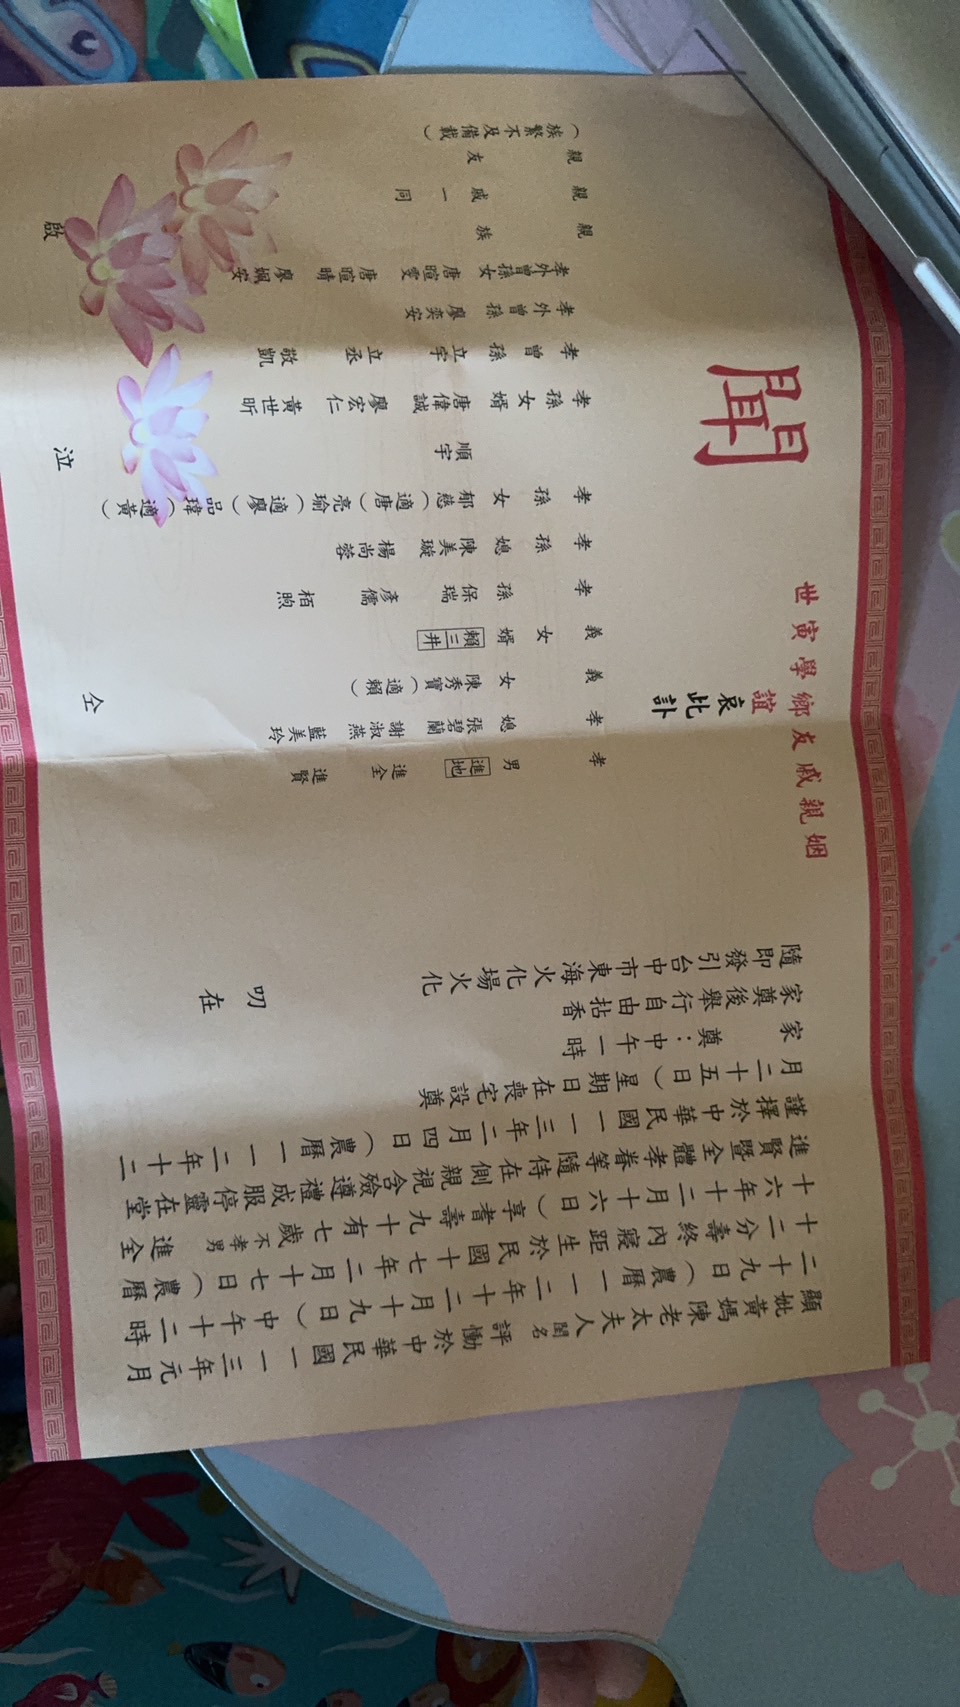 顯妣黃媽陳老太夫人閨名評慟於中華民國一一三年元月
二十九日(農曆一一二年十二月十九日)中午十二時
十二分壽終內寢距生於民國十七年二月十七日(農曆
十六年十二月十六日)享耆壽九十有七歲不孝男進全
進賢暨全體孝眷等隨侍在側親視含殮遵禮成服停靈在堂
謹擇於中華民國一一三年二月四日(農曆一一二年十二
月二十五日)星期日在喪宅設奠
家奠:中午一時
家奠後舉行自由拈香
隨即發引台中市東海火化場火化
叨在
姻親戚友鄉學寅世
誼哀此訃
聞
孝男 進地 進全 進賢
孝媳 張碧蘭 謝淑燕 藍美玲
義女 陳秀寶(適賴)
義女婿 賴三井
孝孫 保瑞 彥儒 栢煦
孝孫媳 陳美璇 楊尚蓉
孝孫女 郁慈(適唐) 亮瑜(適廖) 品瑋(適黃)
順宇
孝孫女婿 唐偉誠 廖宏仁 黃世昕
孝曾孫 立宇 立丞 敬凱
孝外曾孫 廖奕安
孝外曾孫女 唐暄雯 唐暄晴 廖姵安
親族
親戚一同
親友
(族繁不及備載)
仝
泣
啟